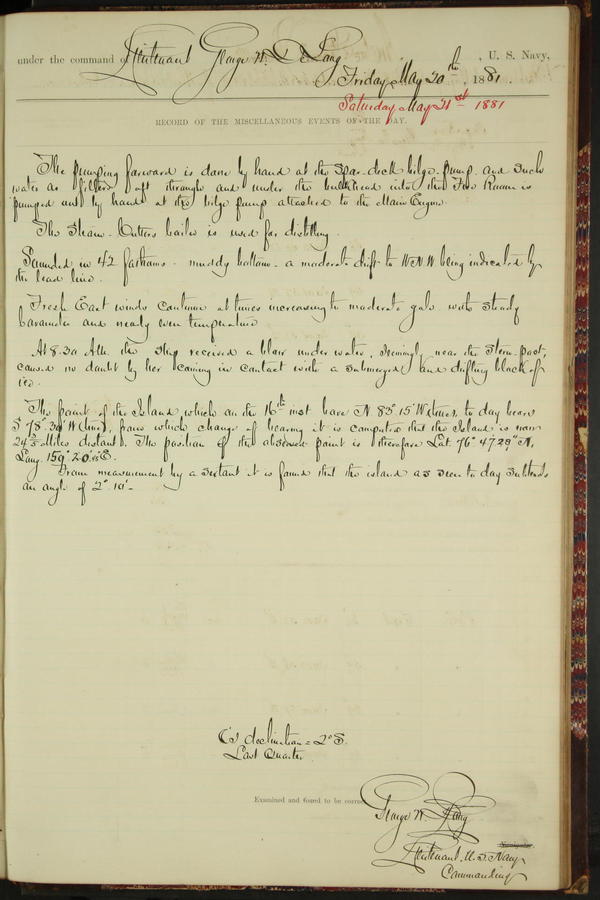 under the command of Lieutenant George W. De Long, U. S. Navy,
Friday, May 20th, 1881.
Saturday, May 21st 1881
RECORD OF THE MISCELLANEOUS EVENTS OF THE DAY.
The pumping forward is done by hand at the Spar-deck bilge-pump and such
water as filters aft through and under the bulkhead into the Fire Room is
pumped out by hand at the bilge pump attached to the Main Engine.
The Steam-Cutters boiler is used for distilling.
Sounded in 42 fathoms - muddy bottom - a moderate drift to WNW being indicated by
the lead line.
Fresh East winds continue at times increasing to moderate gale with steady
barometer and nearly even temperature
At 8.30 A.M. the Ship received a blow under water, seemingly near the Stern-post,
caused no doubt by her coming in contact with a submerged and drifting block of
ice.
The point of the Island which on the 16th inst bore N 83° 15' W (true), to day bears
S 78° 30' W (true), from which change of bearing it is computed that the Island is now
24 3/5 Miles distant. The position of the observed point is therefore Lat. 76° 47' 28" N,
Long 159° 20' E.
From measurement by a sextant it is found that the island as seen to day subtends
an angle of 2° 10'-
C's declination = 2° S.
Last Quarter
Examined and found to be correct.
George W. De Long
Lieutenant U.S. Navy
Commanding